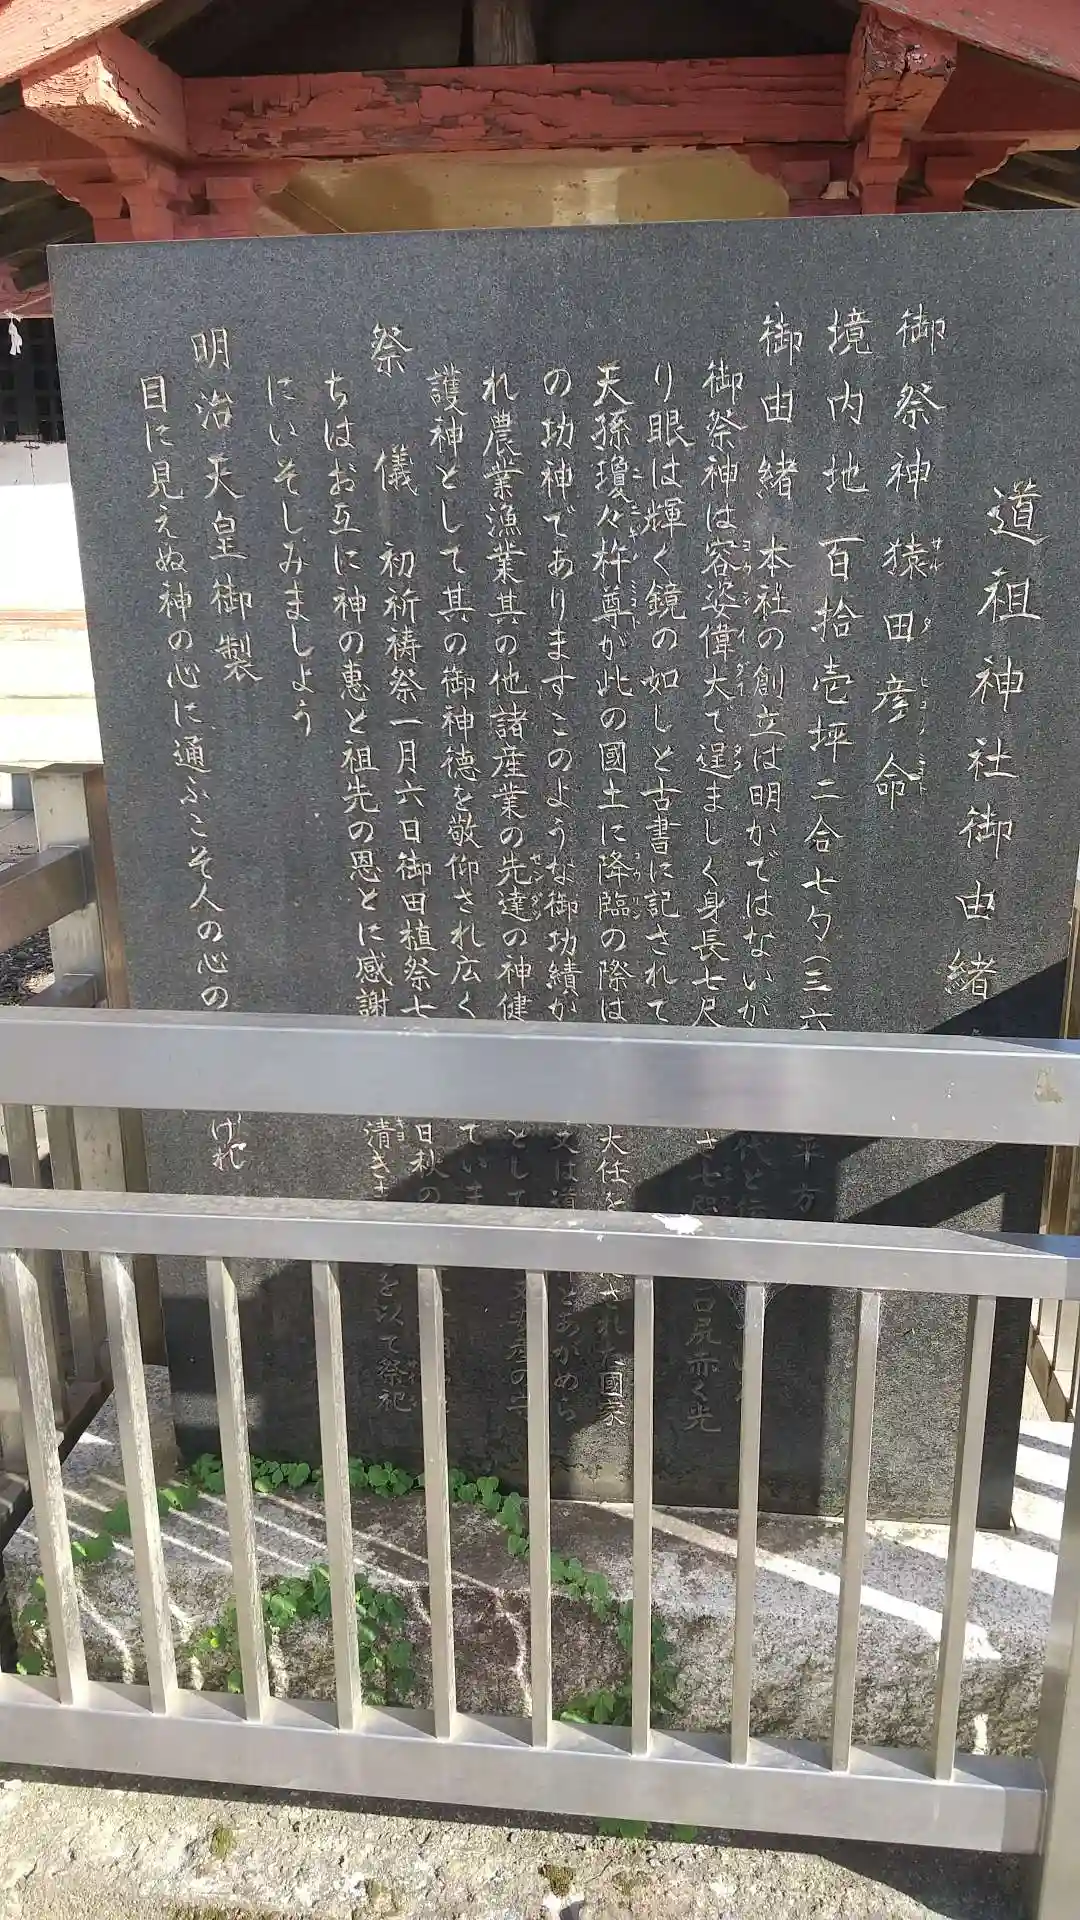 道祖神社御由緒
御祭神 猿田彦命
境内地 百拾壱坪二合七勺(三六 平方
御由緒 本社の創立は明かではないが 代と
御祭神は容姿偉大て逞ましく身長七尺 さ七 口尻赤く光
り眼は輝く鏡の如しと古書に記されて
天孫瓊々杵尊が此の國土に降臨の際は 大任を された國家
の功神でありますこのような御功績が 又は道 とあがめら
れ農業漁業其の他諸産業の先達の神健 として 産の守
護神として其の御神徳を敬仰され広く ていま
祭儀 初祈祷祭一月六日御田植祭七 日秋の
ちはお互に神の恵と祖先の恩とに感謝 清き を以て祭祀
にいそしみましよう
明治天皇御製
目に見えぬ神の心に通ふこそ人の心の けれ